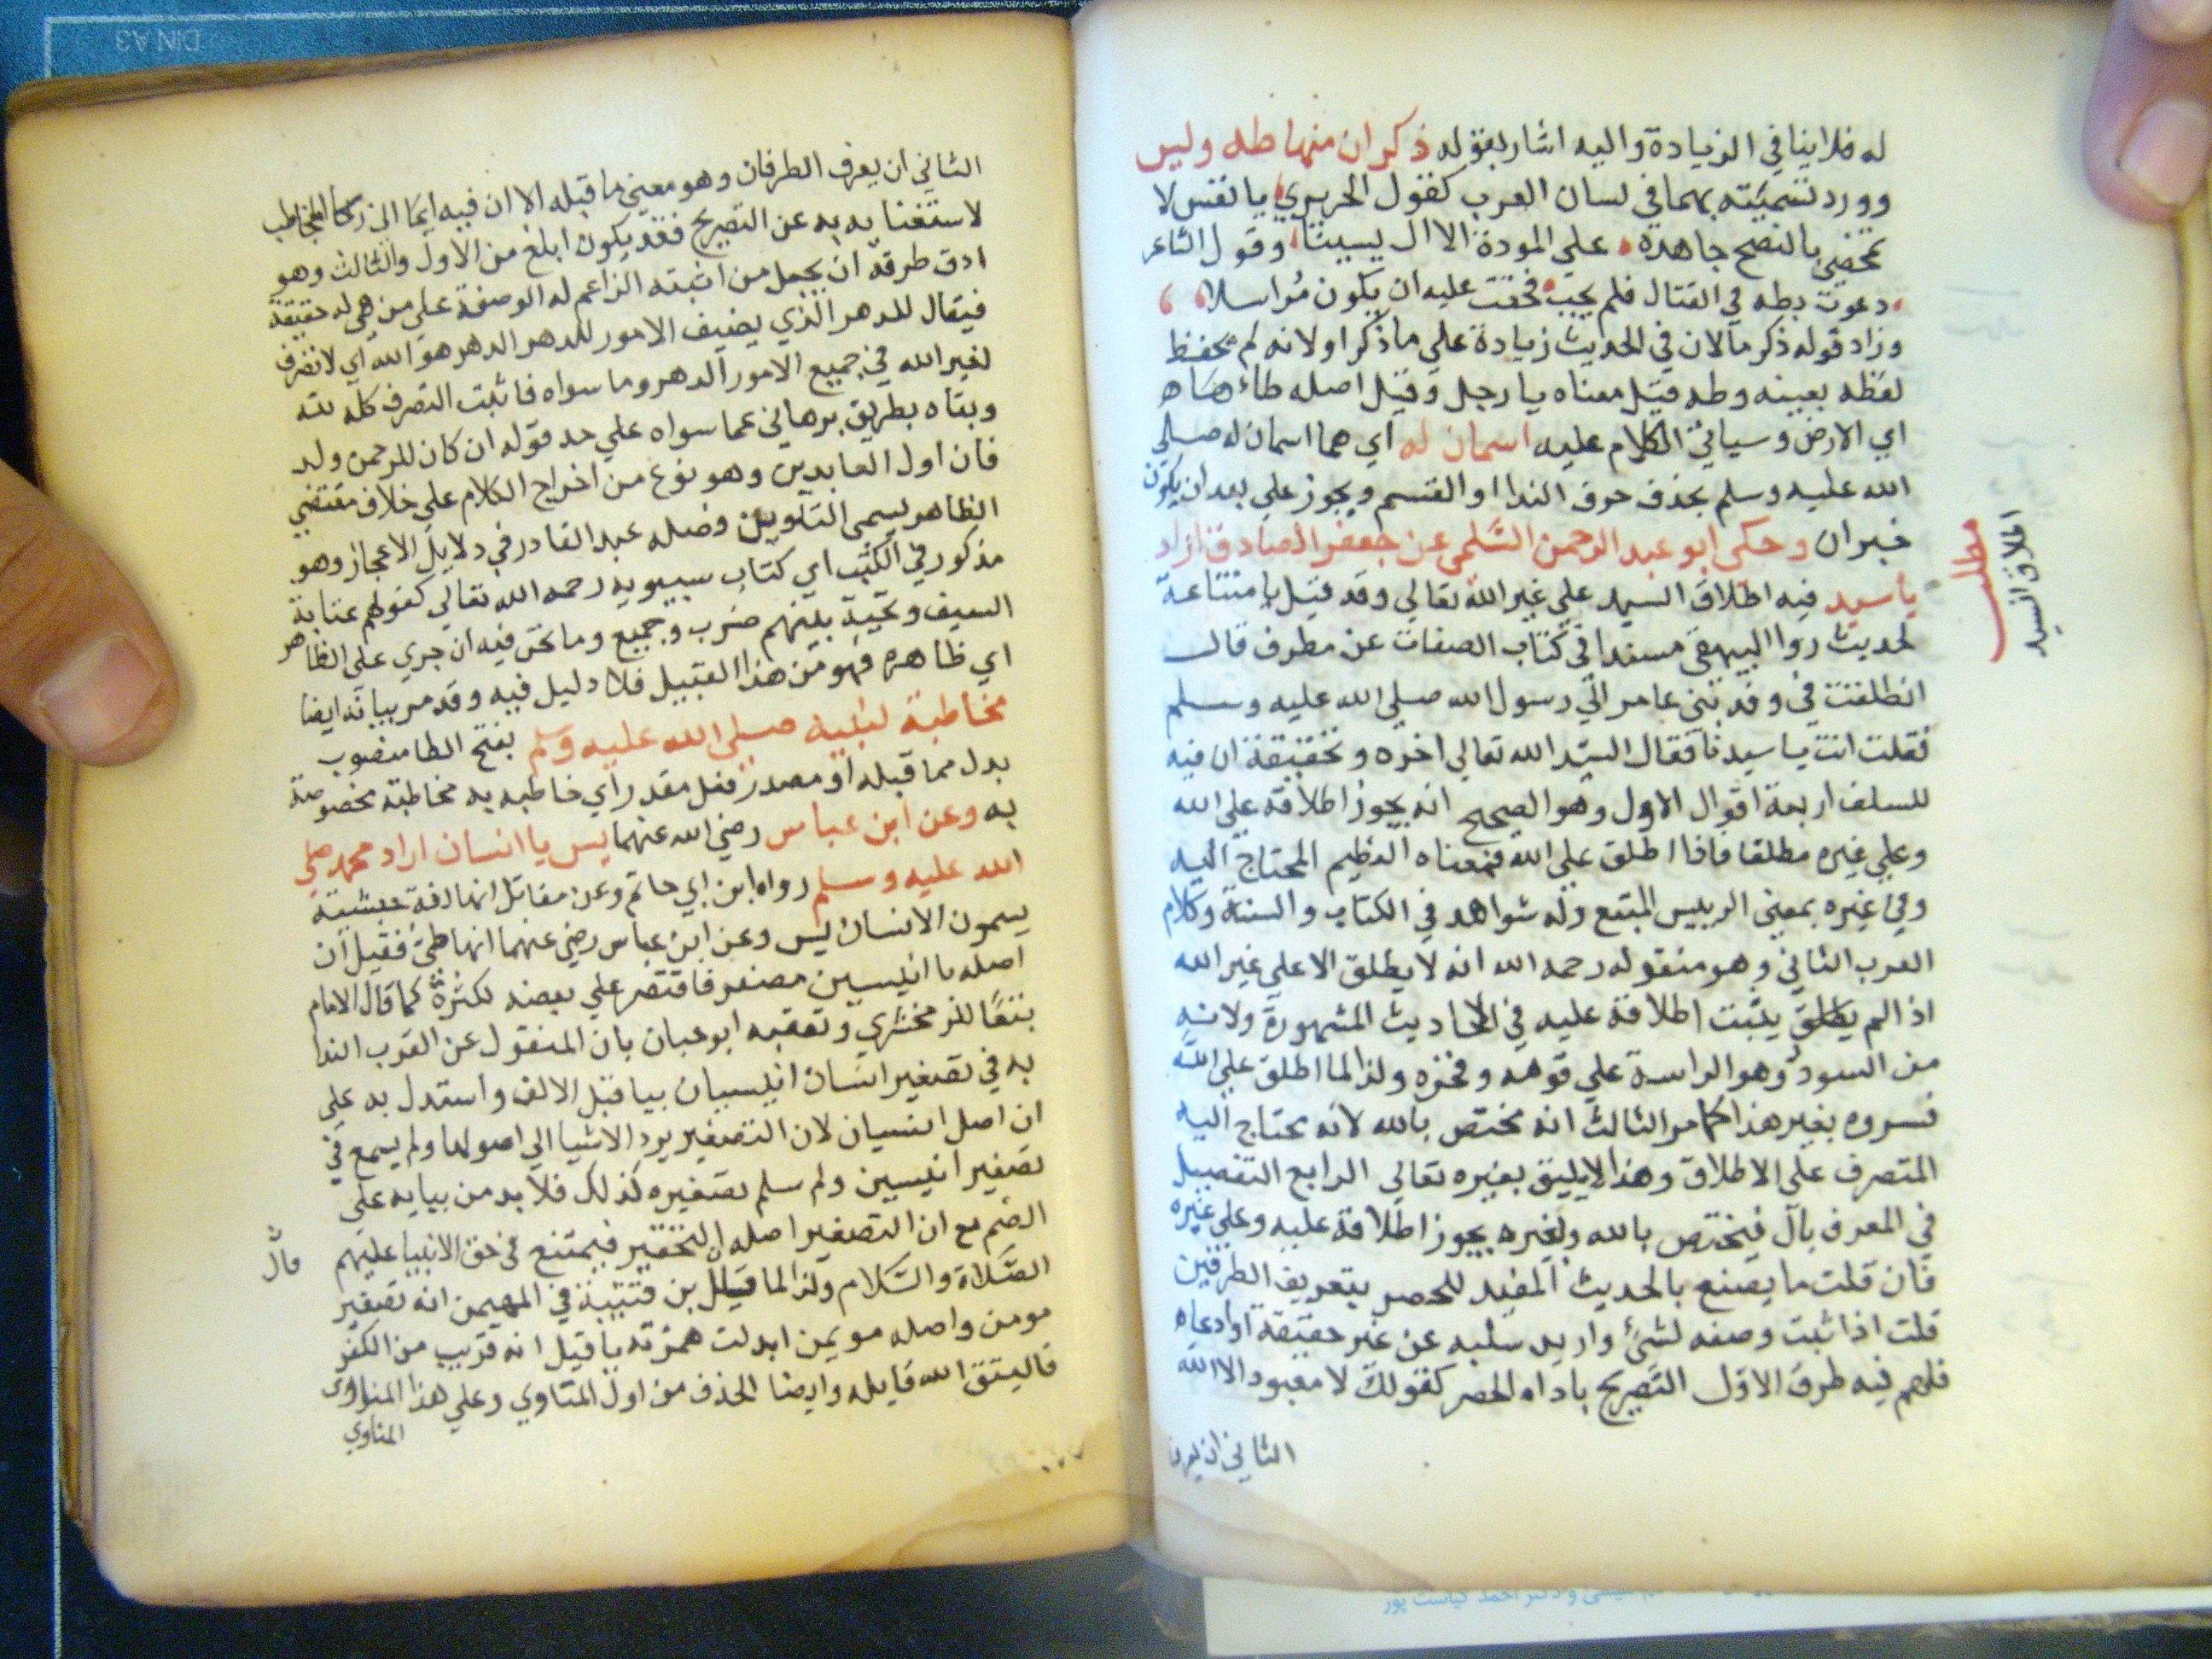 له فلا ينافي الزيادة واليه اشار بقوله ذكر ان منها طه وليس
وورد تسميته بهما في لسان العرب كقول الحريري يا نفس لا
تمحضي بالنصح جاهدة على المودة الا ال ييسينا وقول الشاعر
دعوت بطه في القتال فلم يجب فخفت عليه ان يكون مُراسلا
وزاد قوله ذكر مالان في الحديث زيادة علي ما ذكر او لانه لم يحفظ
لفظه بعينه وطه قيل معناه يا رجل وقيل اصله طاء هاء
اي الارض وسياتي الكلام عليه اسمان له اي هما اسمان له صلي
الله عليه وسلم بحذف حرف الندا او القسم ويجوز علي بعد ان يكون
خبران وحكى ابو عبد الرحمن السّلمى عن جعفر الصادق اراد
ياسيد فيه اطلاق السيد علي غير الله تعالي وقد قيل بامتناعه
لحديث روا البيهقي مسندا في كتاب الصفات عن مطرف قال
انطلقت في وفد بني عامر الي رسول الله صلي الله عليه وسلم
فقلت انت يا سيدنا فقال السيّد الله تعالي اخره وتحقيقه ان فيه
للسلف اربعة اقوال الاول وهو الصحيح انه يجوز اطلاقه علي الله
وعلي غيره مطلقا فاذا اطلق علي الله فمعناه العظيم المحتاج اليه
وفي غيره بمعنى الرييس المتبع وله شواهد في الكتاب والسنة وكلام
العرب الثاني وهو منقوله رحمه الله انه لا يطلق الا علي غير الله
اذا لم يطلق يثبت اطلاقه عليه في الاحاديث المشهورة ولانه
من السودد وهو الراسة علي قومه وفخره ولذا لما اطلق علي الله
فسروه بغير هذا كما مر الثالث انه مختص بالله لانه يحتاج اليه
المتصرف على الاطلاق وهذا لا يليق بغيره تعالي الرابع التفصيل
في المعرف بآل فيختص بالله ولغيره يجوز اطلاقه عليه وعلي غيره
فان قلت ما يصنع بالحديث المفيد للحصر بتعريف الطرفين
قلت اذا ثبت وصفه لشئ واريد سلبه عن غير حقيقة او ادعاء
فلهم فيه طرق الاول التصريح باداه الحصر كقولك لا معبود الا الله
الثاني ان يعرف
مطلب
اطلاق السيد
الثاني ان يعرف الطرفان وهو معين ما قبله الا ان فيه ايما الى ذكا المخاطب
لاستغنا به به عن التصريح فقد يكون ابلغ من الاول والثالث وهو
ادق طرقه ان يجعل من اثبته الزاعم له الوصفة علي من هي له حقيقة
فيقال للدهر الذي يضيف الامور للدهر الدهر هو الله اي لا تصرف
لغير الله في جميع الامور الدهر وما سواه فاثبت التصرف كله لله
وبقاه بطريق برهاني عما سواه علي حد قوله ان كان للرحمن ولد
فان اول العابدين وهو نوع من اخراج الكلام علي خلاف مقتضي
الظاهر يسمى التاويل وفصله عبد القادر في دلايل الاعجاز وهو
مذكور في الكتب اي كتاب سيبويه رحمه الله تعالي كقولهم عتابة
السيف وتحيية بينهم ضرب وجيع وما نحن فيه ان جري على الظاهر
اي ظاهره فهو من هذا القبيل فلا دليل فيه وقد مر بيانه ايضا
مخاطبة لنبيه صلى الله عليه وسلم بفتح الطا منصوب
بدل مما قبله او مصدر فعل مقدر اي خاطبه به مخاطبة مخصوصة
به وعن ابن عباس رضي الله عنهما يس يا انسان اراد محمد صلي
الله عليه وسلم رواه ابن ابي حاتم وعن مقاتل انها لغة حبشية
يسمون الانسان يس وعن ابن عباس رضي عنهما انها طي فقيل ان
اصله يا انيسين مصغر فاقتصر علي بعضه لكثرة كما قال الامام
بتعًا للزمخشري وتعقبه ابو حيان بان المنقول عن العرب الندا
به في تصغير انسان انيسيان بيا قبل الالف واستدل به علي
ان اصل انسيان لان التصغير يرد الاشيا الي اصولها ولم يسمع في
تصغير انيسيين ولم سلم تصغيره كذلك فلا بد من بيايه على
الضم مع ان التصغير اصله التحقير فيمتنع في حق الانبيا عليهم
الصّلاة والسّلام ولذا لما قيل بن قتيبة في المهيمن انه تصغير
قال
مومن واصله مويمن ابدلت همزته يا قيل انه قريب من الكفر
فاليتق الله قايله وايضا الحذف من اول المتاوي وعلي هذا المناوي
المناوي
DIN A3